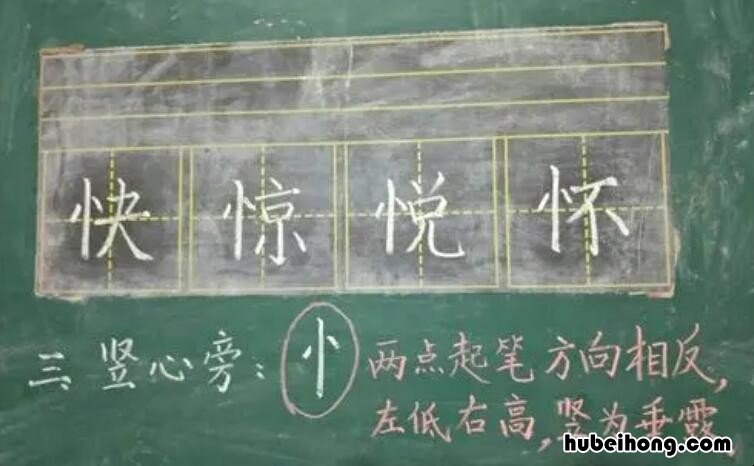 快 惊 悦 怀
三、竖心旁：忄 两点起笔方向相反，
左低右高，竖为垂露
hubeihong.com